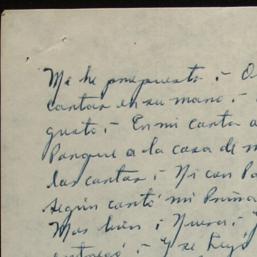 Me he propuesto :- O
cantar en su mano :-
gusto :- En mi canta a
Porque a la casa de m
las cantar :- Ni con Pa
según cantó mi Prima
Mas bien ; Nueva ; y
entregó :- Y se huyó